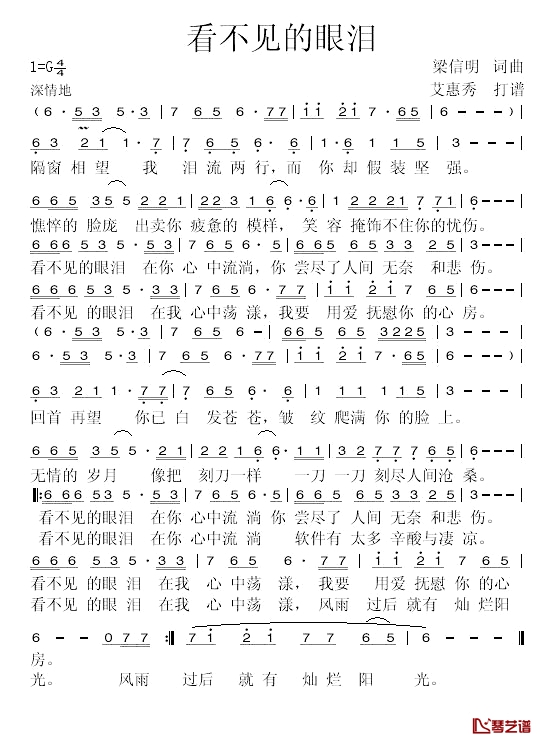 看不见的眼泪
1=G4/4 梁信明 词曲
深情地 艾惠秀 打谱
(6·53 5·3|765 6·77|ii 2i 7·65|6 - - -)|
63 21 1·7|765 6·6|1·6 1 15|3 - - -|
隔窗相望 我 泪流两行,而 你却假装坚 强。
665 355 221|223 166·6·|2221 771|6 - - -|
憔悴的 脸庞 出卖你 疲惫的 模样, 笑 容 掩饰不住你的忧伤。
666535·3|765 6·6|665 6533 25|3 - - -|
看不见的眼泪 在你 心中流淌,你 尝尽了人间 无奈 和悲 伤。
666535·3|765 6·77|ii 2i 765|6 - - -|
看不见 的眼泪 在我 心中荡 漾,我要 用爱 抚慰你 的心 房。
(6·53 5·3|765 6·6|665 65 3225|3 - - -|
6·53 5·3|765 6·77|ii 2i 7·65|6 - - -)|
63 211·77|765 6·6|1 1 15|3 - -|
回首 再望 你已 白 发苍 苍,皱 纹 爬满 你 的脸 上。
665 35 5·5|221 66·6·|32 77765|6 - - -|
无情的 岁月 像把 刻刀一样 一刀 一刀 刻尽人间沧 桑。
‖:666535·3|765 6·6|665 6533 25|3 - - -|
看不见的眼泪 在你 心中流 淌 你 尝尽了 人间 无奈 和悲 伤。
看不见的眼泪 在你 心中流 淌 软件有 太多 辛酸与凄 凉。
666535·3|765 6·77|ii 2i 765|
看不见 的眼 泪 在我 心 中荡 漾, 我要 用爱 抚慰 你 的心
看不见 的眼 泪 在我 心 中荡 漾, 风雨 过后 就有 灿 烂阳
6 - - 077:‖7i 2i 77 65|6 - - -‖
房。
光。 风雨 过后 就 有 灿 烂 阳 光。
琴艺谱